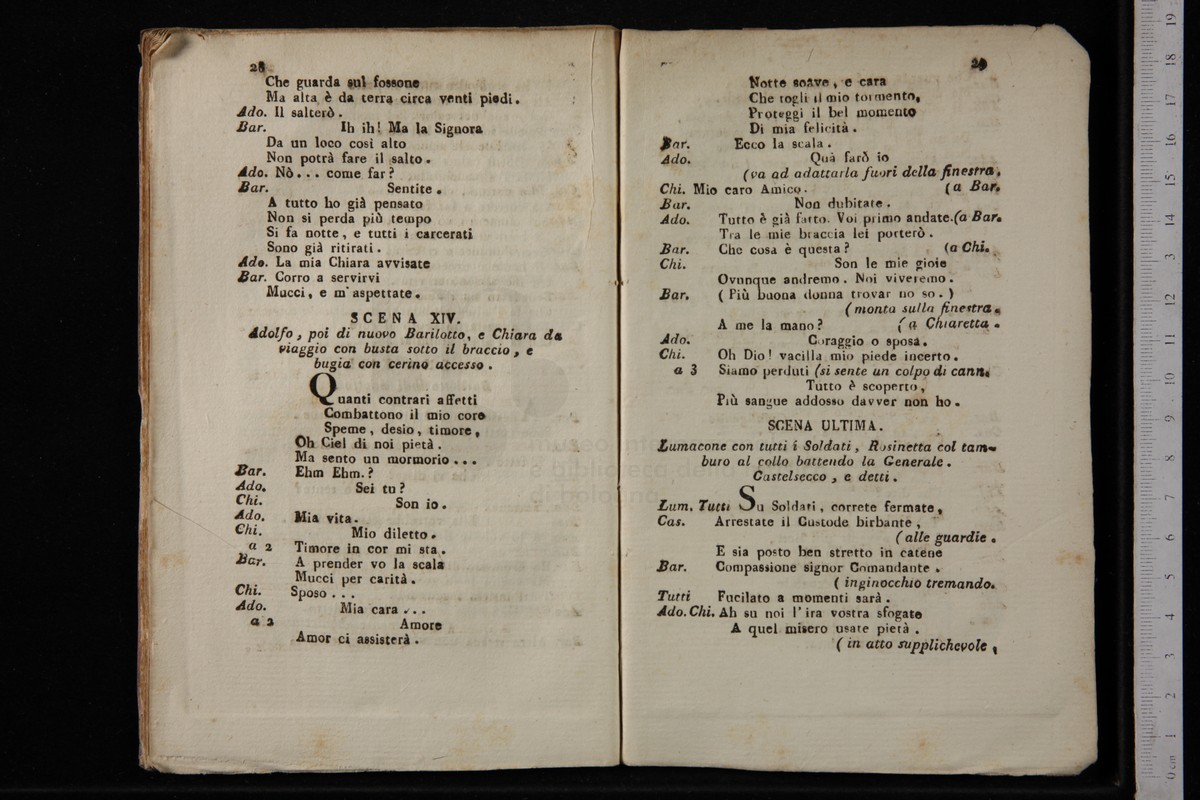 28
Che guarda sul fossone
Ma alta è da terra circa venti piedi.
Ado. Il salterò.
Bar. Ih ih! Ma la Signora
Da un loco così alto
Non potrà fare il salto.
Ado. Nò... come far?
Bar. Sentite.
A tutto ho già pensato
Non si perda più tempo
Si fa notte, e tutti i carcerati
Sono già ritirati.
Ado. La mia Chiara avvisate
Bar. Corro a servirvi
Mucci, e m'aspettate.
SCENA XIV.
Adolfo, poi di nuovo Barilotto, e Chiara da
viaggio con busta sotto il braccio, e
bugia con cerino accesso.
Quanti contrari affetti
Combattono il mio core
Speme, desio, timore,
Oh Ciel di noi pietà.
Ma sento un mormorio...
Bar. Ehm Ehm.?
Ado. Sei tu?
Chi. Son io.
Ado. Mia vita.
Chi. Mio diletto.
a 2 Timore in cor mi sta.
Bar. A prender vo la scala
Mucci per carità.
Chi. Sposo...
Ado. Mia cara...
a 2 Amore
Amor ci assisterà.
29
Notte soave, e cara
Che togli il mio tormento,
Proteggi il bel momento
Di mia felicità.
Bar. Ecco la scala.
Ado. Quà farò io
(va ad adattarla fuori della finestra.
Chi. Mio caro Amico. (a Bar.
Bar. Non dubitate.
Ado. Tutto è già fatto. Voi primo andate.(a Bar.
Tra le mie braccia lei porterò.
Bar. Che cosa è questa? (a Chi.
Chi. Son le mie gioie
Ovunque andremo. Noi viveremo.
Bar. (Più buona donna trovar no so.)
(monta sulla finestra.
A me la mano? (a Chiaretta.
Ado. Coraggio o sposa.
Chi. Oh Dio! vacilla mio piede incerto.
a 3 Siamo perduti (si sente un colpo di cann.
Tutto è scoperto,
Più sangue addosso davver non ho.
SCENA ULTIMA.
Lumacone con tutti i Soldati, Rosinetta col tam-
buro al collo battendo la Generale.
Castelsecco, e detti.
Lum. Tutti Su Soldati, correte fermate,
Cas. Arrestate il Custode birbante,
(alle guardie.
E sia posto ben stretto in catene
Bar. Compassione signor Comandante.
(inginocchio tremando.
Tutti Fucilato a momenti sarà.
Ado. Chi. Ah su noi l'ira vostra sfogate
A quel misero usate pietà.
(in atto supplichevole,